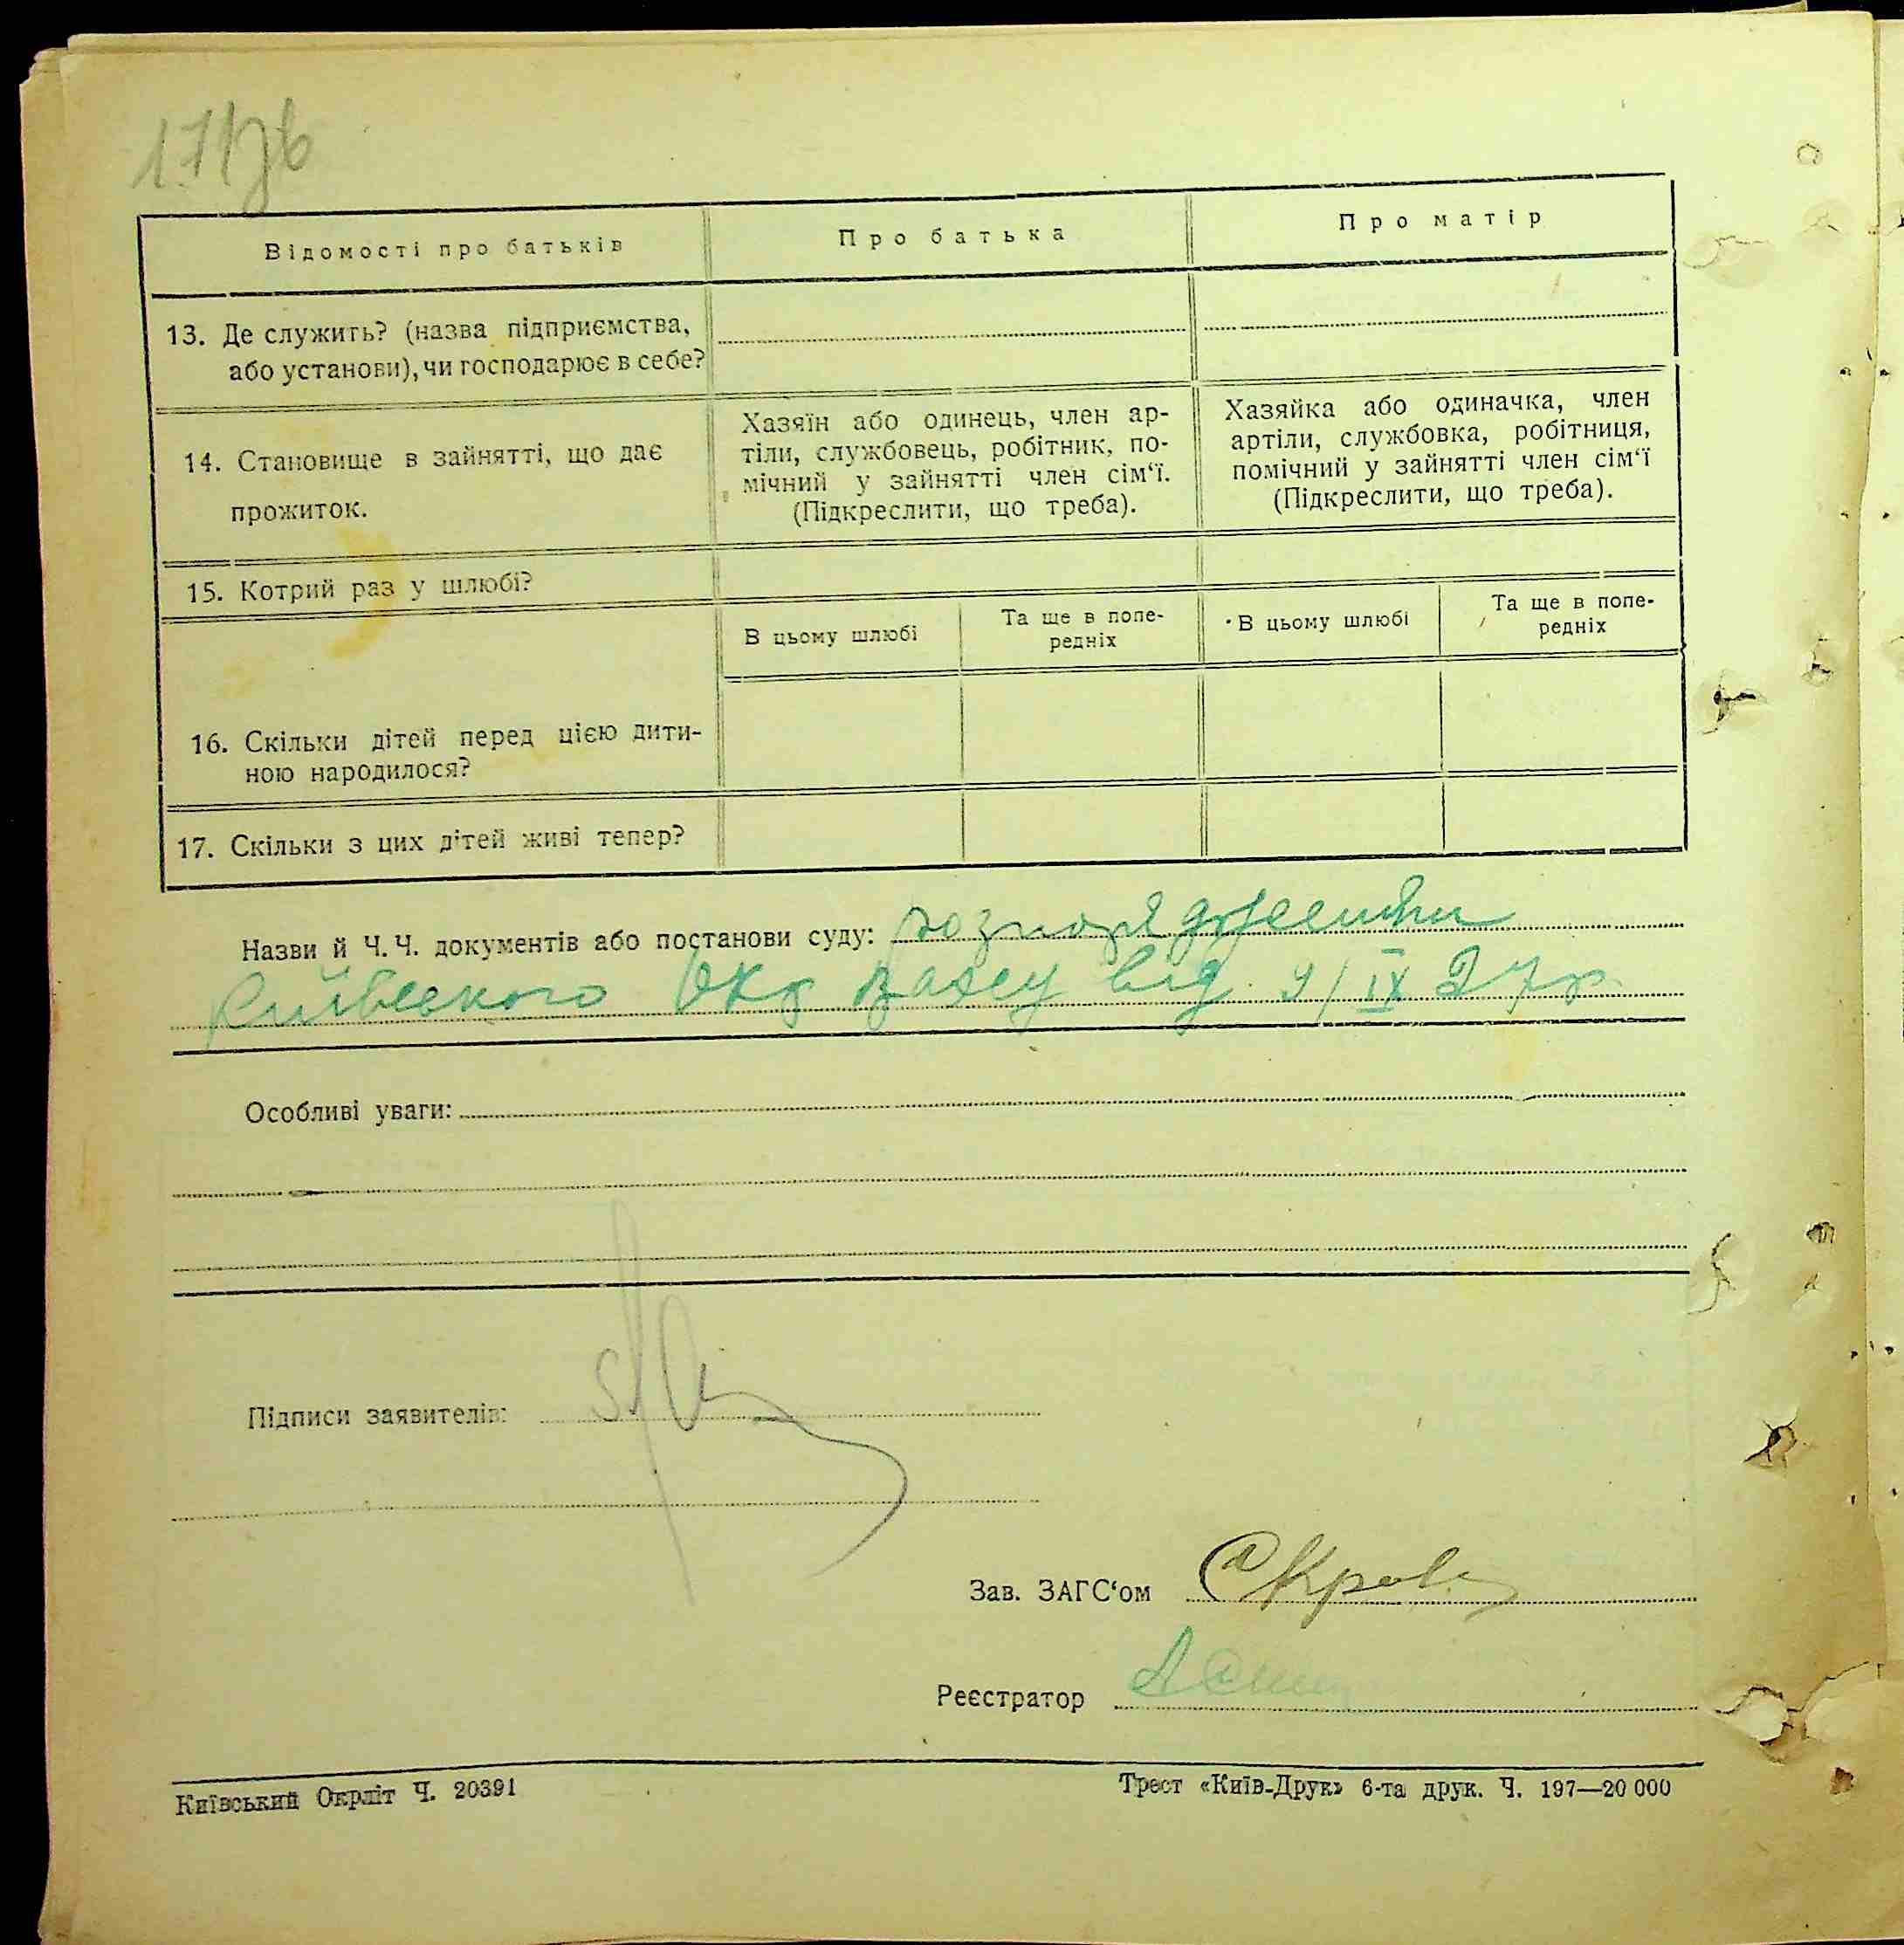 171зв
Відомості про батьків
Про батька
Про матір
13. Де служить? (назва підприємства,
або установи), чи господарює в себе?
14. Становище в зайнятті, що дає
прожиток.
Хазяїн або одинець, член ар-
тіли, службовець, робітник, по-
мічний у зайнятті член сім‘ї.
(Підкреслити, що треба).
Хазяйка або одиначка, член
артіли, службовка, робітниця,
помічний у зайнятті член сім‘ї
(Підкреслити, що треба).
15. Котрий раз у шлюбі?
В цьому шлюбі
Та ще в попе-
редніх
В цьому шлюбі
Та ще в попе-
редніх
16. Скільки дітей перед цією дити-
ною народилося?
17. Скільки з цих дітей живі тепер?
Назви й Ч. Ч. документів або постанови суду: розпорядження
Київського Окр загсу від 9/IX 27р
Особливі уваги:
Підписи заявителів:
Зав. ЗАГС‘ом
Реєстратор
Київський Окрліт Ч. 20391
Трест «Київ-Друк» 6-та друк. Ч. 197—20 000